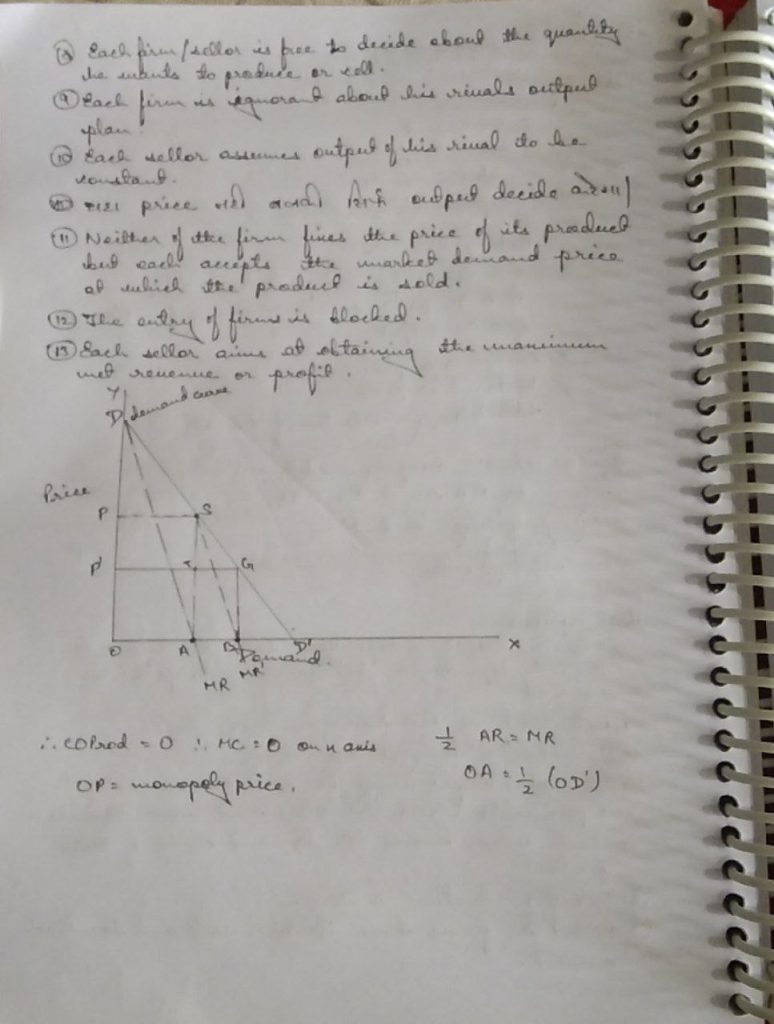 ⑧ Each firm/sellor is free to decide about the quantity
he wants to produce or sell.
⑨ Each firm is ignorant about his rivals output
plan.
⑩ Each sellor assumes output of his rival to be
constant.
price नहीं output decide
⑪ Neither of the firm fixes the price of its product
but each accepts the market demand price
at which the product is sold.
⑫ The entry of firms is blocked.
⑬ Each sellor aims at obtaining the maximum
net revenue or profit.
Y
D demand curve
Price
P S
P' T G
O A B D' X
Demand.
MR MR'
∴ COProd = 0 ∴ MC = 0 on x axis
1/2 AR = MR
OP = monopoly price.
OA = 1/2 (OD')